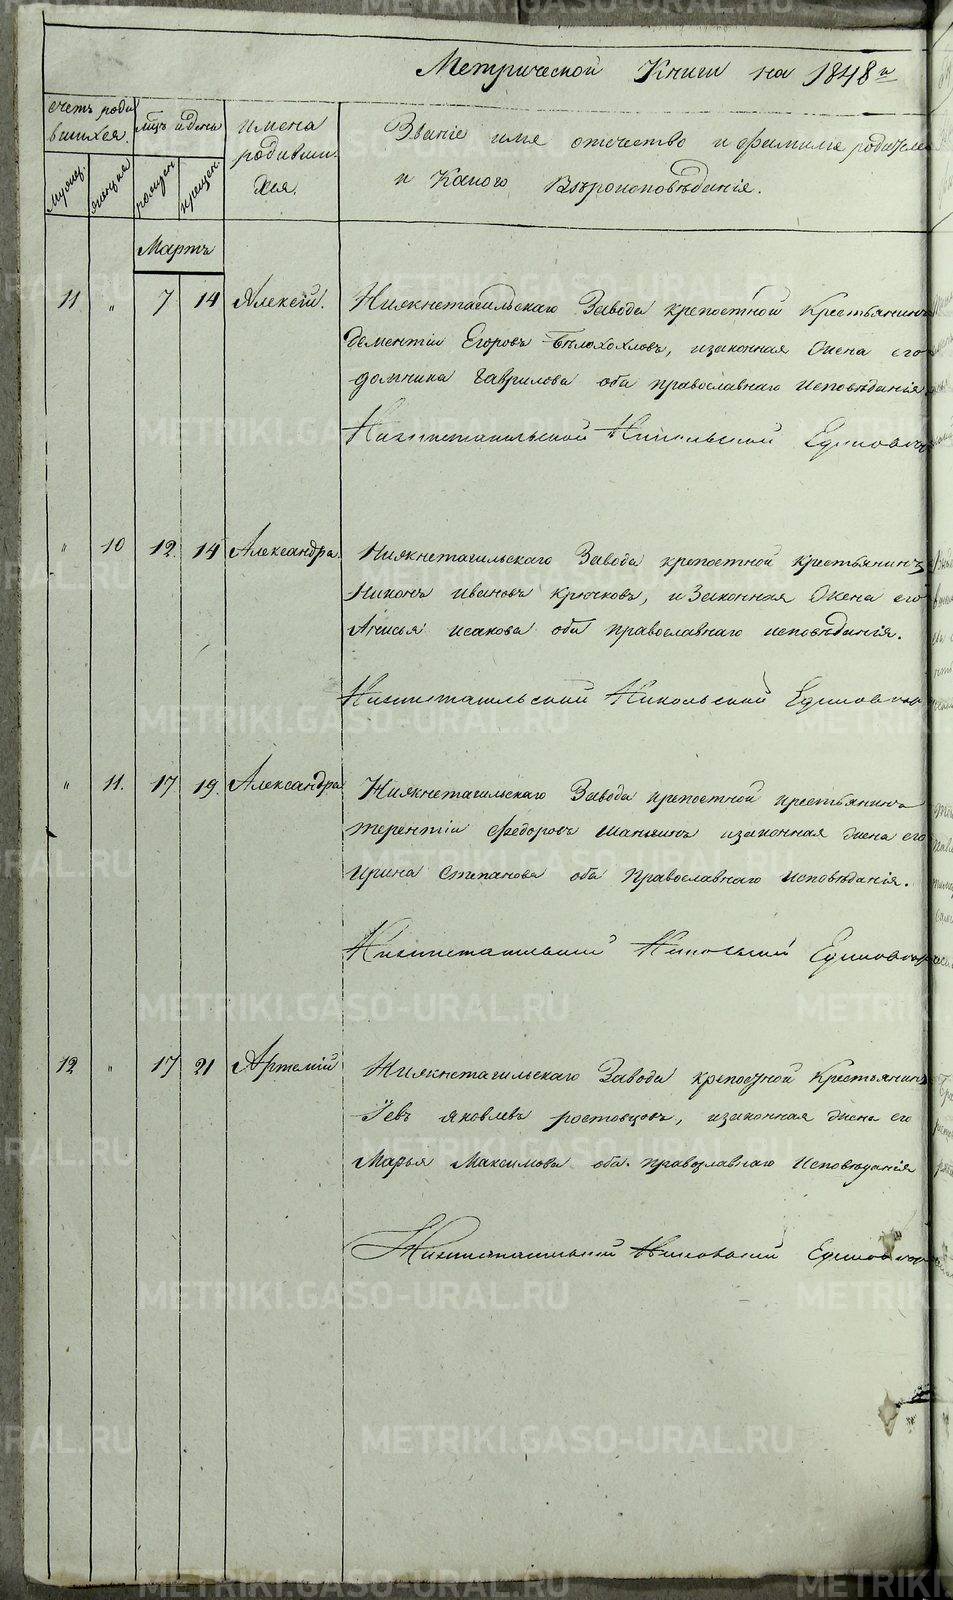 Метрической Книги на 1848 й
счетъ роди
вшихся.
мцъ и день
имена
родивши
хся.
Званіе имя отечество и фамилія родителе
и Какого Вѣроисповѣданія.
мужщ.
женщин
рожден.
крещен.
Мартъ
11 " 7 14 Алексѣй. Нижнетагильскаго Завода крепостной Крестьянинъ
Дементіи Егоровъ Бѣлохохловъ, изаконная Жена его
домника Гаврилова оба православнаго Исповѣданія.
Нижнетагильской Никольской Единовѣ
" 10 12 14 Александра. Нижнетагильскаго Завода крепостной крестьянинъ
Никонъ ивановъ крючковъ, и Законная Жена его
Анисья исакова оба православнаго исповѣданія.
Нижнетагильской Никольской Единов
" 11. 17 19. Александра Нижнетагильскаго Завода крепостной крестьянинъ
терентіи федоровъ шаньгинъ изаконная жена его
Ирина Степанова оба Православнаго исповѣданія.
Нижнетагильской Никольской Единов
12 " 17 21 Артемій Нижнетагильскаго Завода крѣпостной Крестьянинъ
Іевъ яковлевъ ростовцовъ, изаконная жена его
Марья Максимова оба православнаго Исповѣданія
Нижнетагильской Никольской Единов
METRIKI.GASO-URAL.RU